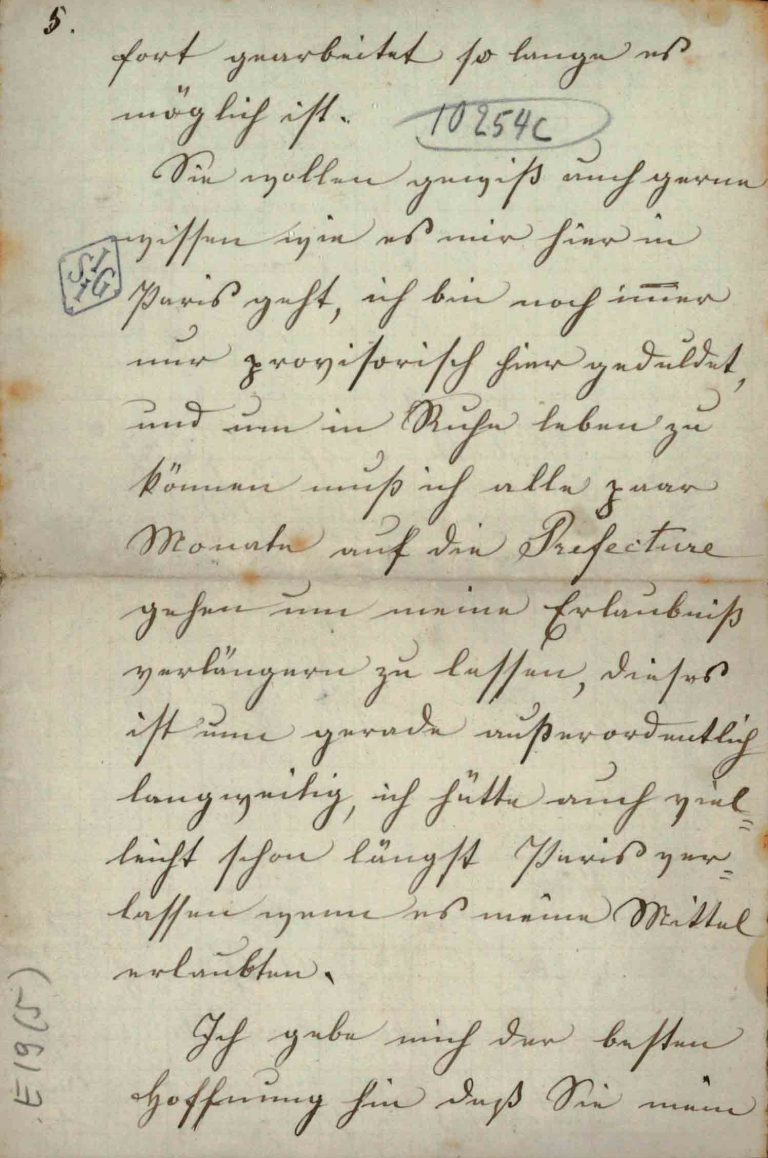 5.
fort gearbeitet so lange es
möglich ist.
10254c
Sie wollen gewiß auch gerne
wissen wie es mir hier in
Paris geht, ich bin noch im̅er
nur provisorisch hier geduldet,
und um in Ruhe leben zu
können muß ich alle paar
Monate auf die Prefecture
gehen um meine Erlaubniß
verlängern zu lassen, dieses
ist nun gerade außerordentlich
langweilig, ich hätte auch viel=
leicht schon längst Paris ver=
lassen wenn es meine Mittel
erlaubten.
Ich gebe mich der besten
Hoffnung hin daß Sie mein
IISG
E19(5)